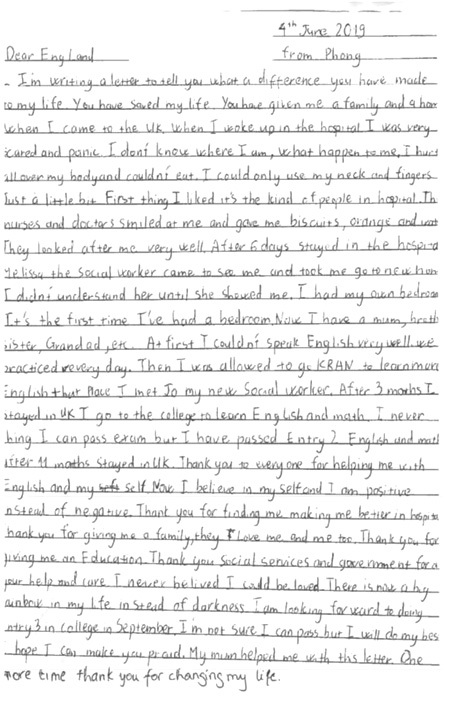 4th June 2019
Dear England from Phong
- I'm writing a letter to tell you what a difference you have made
to my life. You have saved my life. You have given me a family and a hom
when I came to the UK. When I woke up in the hospital I was very
scared and panic. I don't know where I am, what happen to me, I hurt
all over my body and couldn't eat. I could only use my neck and fingers
Just a little bit. First thing I liked it's the kind of people in hospital. Th
nurses and doctors smiled at me and gave me biscuits, orange and wat
They looked after me very well. After 6 days stayed in the hospita
Melissa the Social worker came to see me and took me go to new hom
I didn't understand her until she showed me. I had my own bedroom
It's the first time I've had a bedroom. Now I have a mum, broth
sister, Grandad, etc. At first I couldn't speak English very well we
practiced every day. Then I was allowed to go KRAN to learn mor
English that place I met Jo my new Social worker. After 3 months I
stayed in UK I go to the college to learn English and math. I never
thing I can pass exam but I have passed Entry 2 English and mat
after 11 moths stayed in UK. Thank you to everyone for helping me with
English and my self. Now I believe in my self and I am positive
instead of negative. Thank you for finding me, making me better in hospita
hank you for giving me a family, they love me and me too. Thank you for
giving me an Education. Thank you Social services and government for a
your help and care. I never belived I could be loved. There is now a big
unbow in my life in stead of darkness. I am looking for ward to doing
ntry 3 in college in September. I'm not sure I can pass but I will do my bes
hope I can make you proud. My mum helped me with ths letter. One
more time thank you for changing my life.